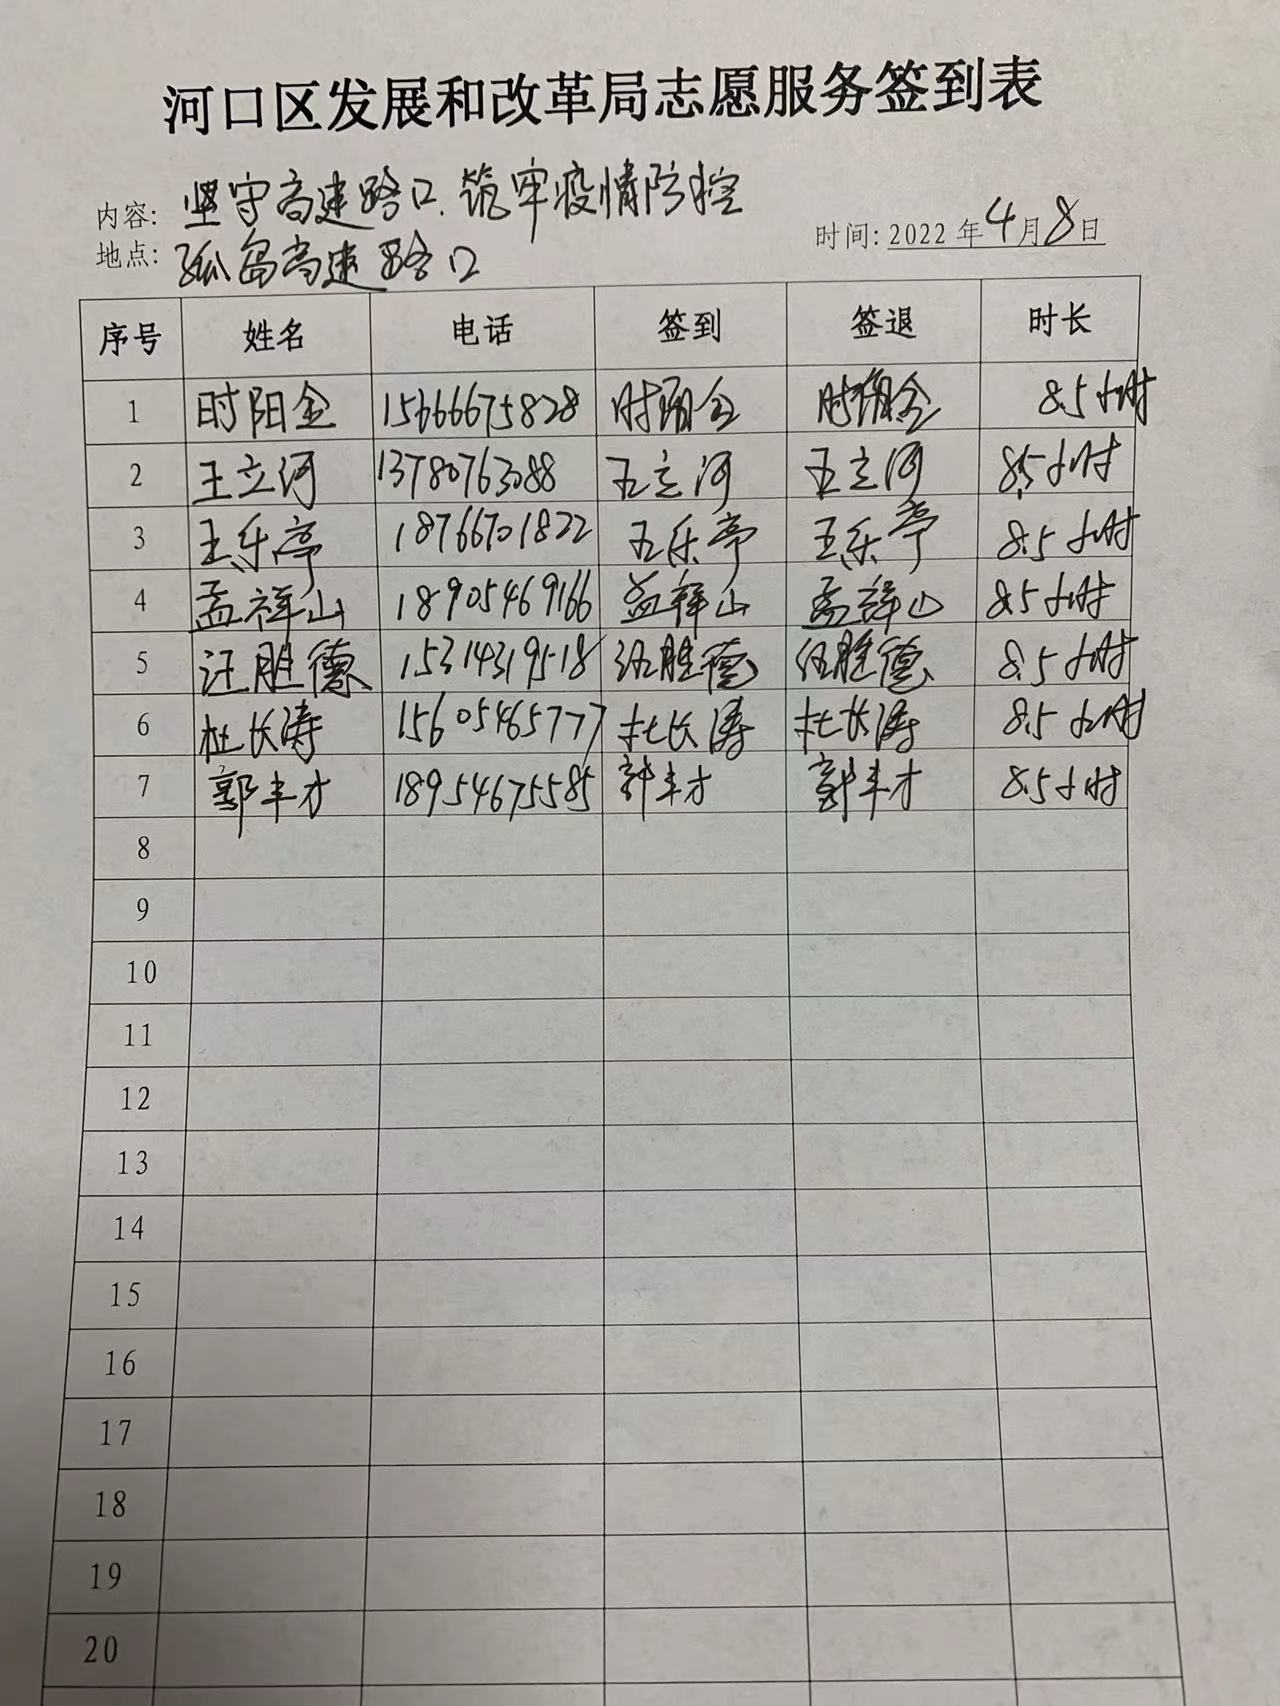 河口区发展和改革局志愿服务签到表
内容: 坚守高速路口.筑牢疫情防控
地点: 孤岛高速路口 时间: 2022年4月8日
序号 姓名 电话 签到 签退 时长
1 时阳金 15666675828 时阳金 时阳金 8.5小时
2 王立河 13780763088 王立河 王立河 8.5小时
3 王乐亭 18766701822 王乐亭 王乐亭 8.5小时
4 孟祥山 18905469166 孟祥山 孟祥山 8.5小时
5 汪胜德 15314319518 汪胜德 汪胜德 8.5小时
6 杜长涛 15605465777 杜长涛 杜长涛 8.5小时
7 郭丰才 18954675585 郭丰才 郭丰才 8.5小时
8
9
10
11
12
13
14
15
16
17
18
19
20